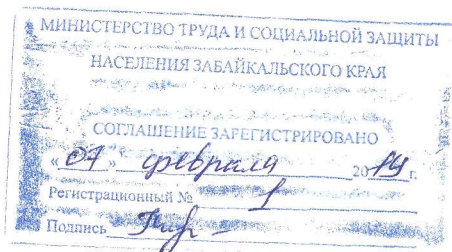 МИНИСТЕРСТВО ТРУДА И СОЦИАЛЬНОЙ ЗАЩИТЫ
НАСЕЛЕНИЯ ЗАБАЙКАЛЬСКОГО КРАЯ
СОГЛАШЕНИЕ ЗАРЕГИСТРИРОВАНО
« 07 » февраля 2019 г.
Регистрационный № 1
Подпись